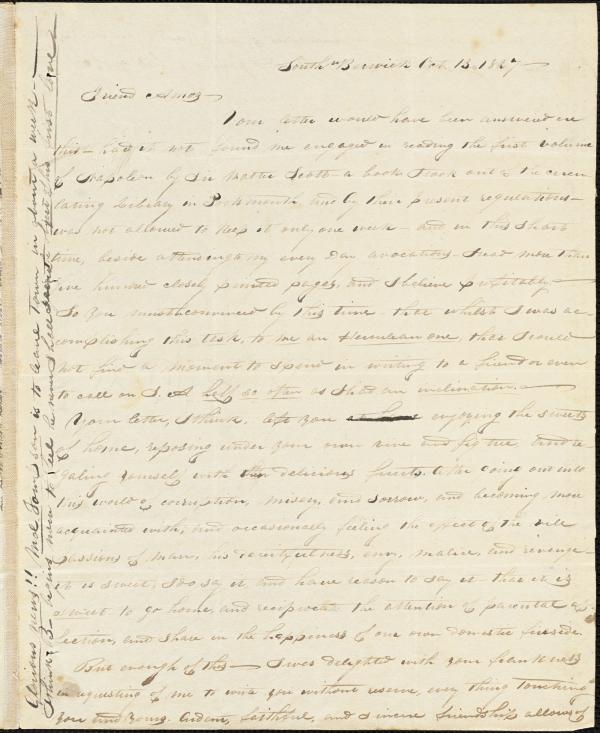 South Berwick Oct. 13. 1827
Friend Amos
Your letter would have been answered ere
this had it not found me engaged in reading the first volume
of Napoleon by Sir Walter Scott a book I took out of the circu
lating Library in Portsmouth, and by their present regulations
was not allowed to keep it only one week and in this short
time, beside attending to my every day avocations I read more than
five hundred closely printed pages, and I believe profitably
So you must convinced by this time that whilst I was ac-
complishing this task, to me an Herculean one, that I could
not find a moment to spend in writing to a friend or even
to call on S. A half so often as I had an inclination.
Your letter, I think, left you enjoying the sweets
of home, reposing under your own vine and fig tree and re
galing yourself with their delicious fruits. After going out into
this world of corruption, misery, and sorrow, and becoming more
acquainted with, and occasionally feeling the effect of the vile
passions of man, his envy, malice, and revenge
it is sweet, I do say it, and have reason to say it that it is
sweet to go home, and reciprocate the attention of parental af
fection, and share in the happiness of one own domestic fireside.
But enough of this I was delighted with your frankness
in requesting of me to write you without reserve, every thing touching
you and yours. Ardent, faithful, and sincere friendship allows of
Glorious news!! Mrs. Tompson is to leave town in about a week
I think B being mean to tell he never shall get his first love